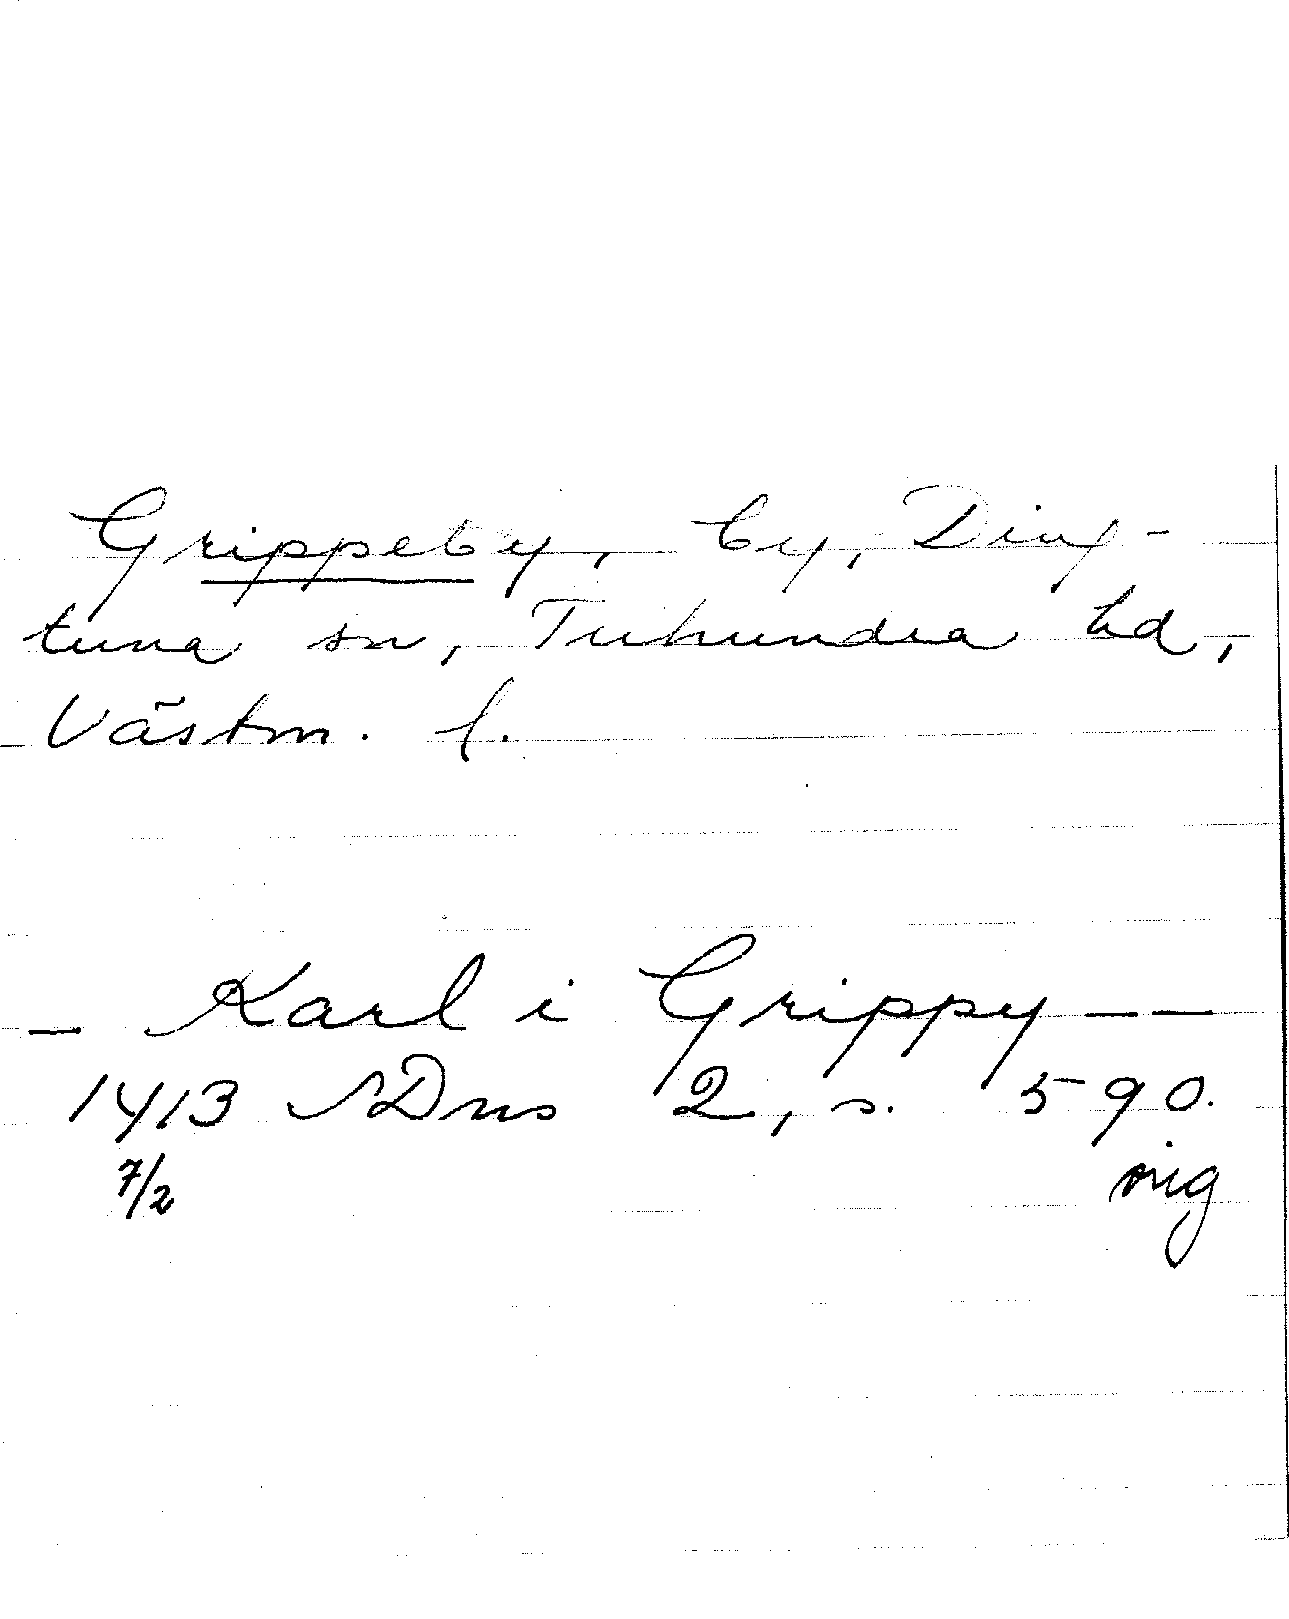 Grippeby, by, Ding-
tuna sn, Tuhundra hd,
Västm. l.
– Karl i Grippy – –
1413 SDns 2, s. 590.
7/2 orig